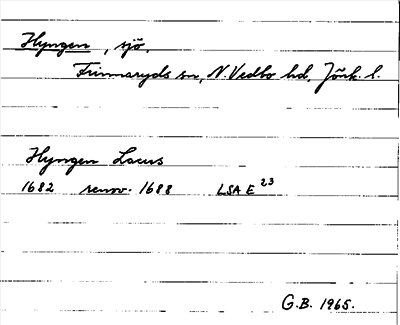 Hyngen, sjö.
Frinnaryds sn, N. Vedbo hd, Jönk. l.
Hyngen Lacus
1682 renov. 1688 LSA E 23
G.B. 1965.